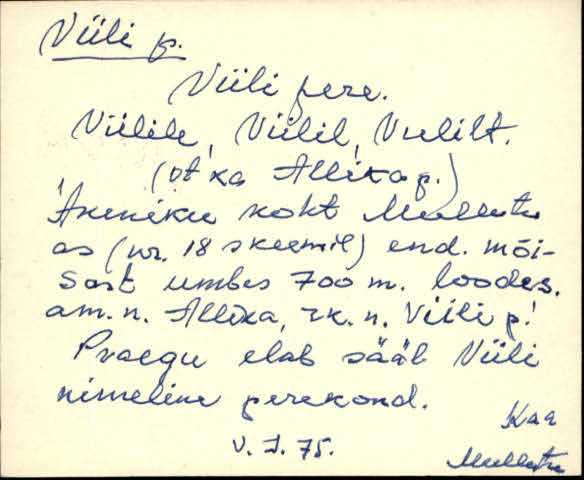 Viili p.
Viili pere.
Viilile, Viilil, Viililt.
(vt ka Allika p.)
Ameniku koht Mullutu
as (nr. 18 skeemil) end. mõi-
sast umbes 700 m. loodes.
am. n. Allika, rk. n. Viili p!
Praegu elab sääb Viili
nimeline perekond.
Kaa
V. J. 75.
Mullutu